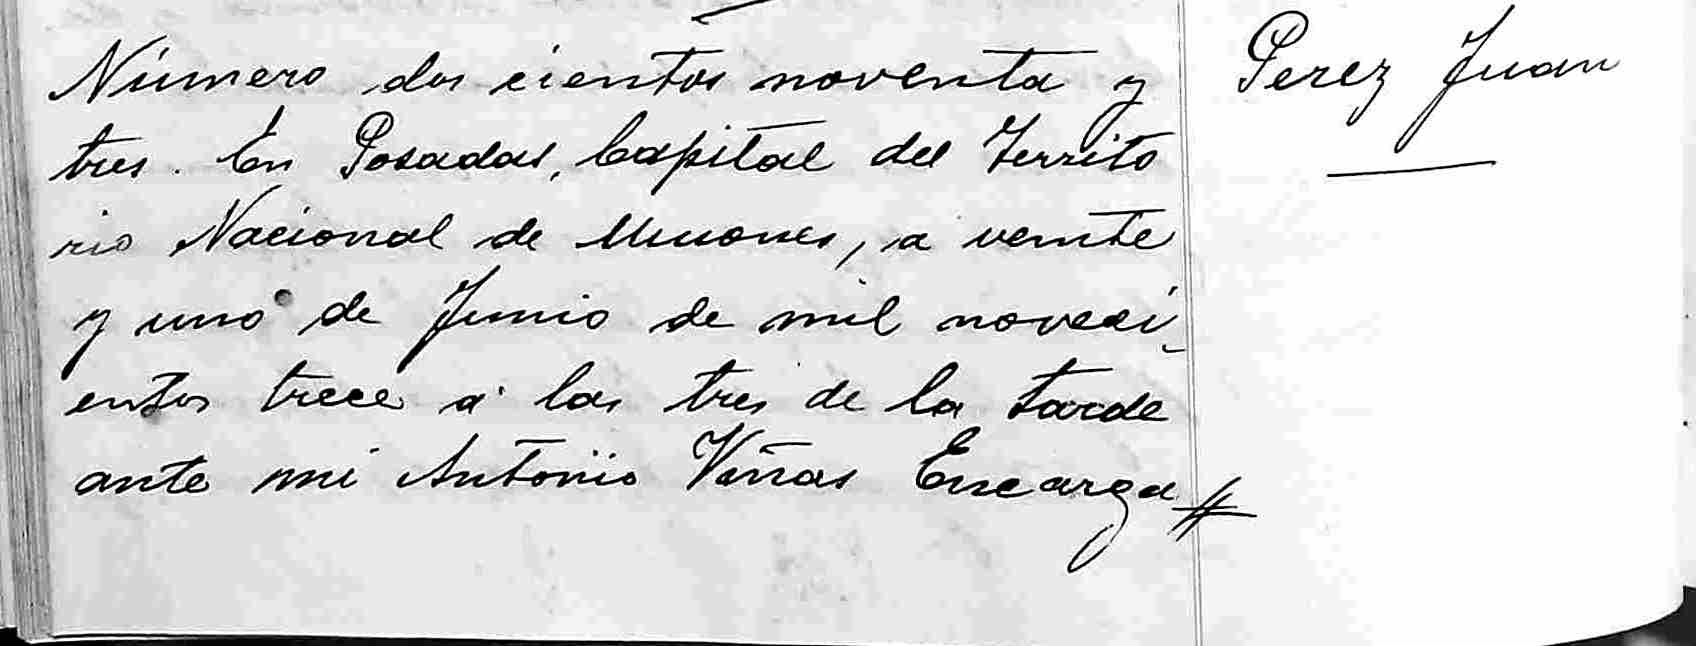 Número dos cientos noventa y
tres. En Posadas, Capital del Territo
rio Nacional de Misiones, a veinte
y uno de Junio de mil noveci
entos trece a las tres de la tarde
ante mi Antonio Viñas Encarga
Perez Juan